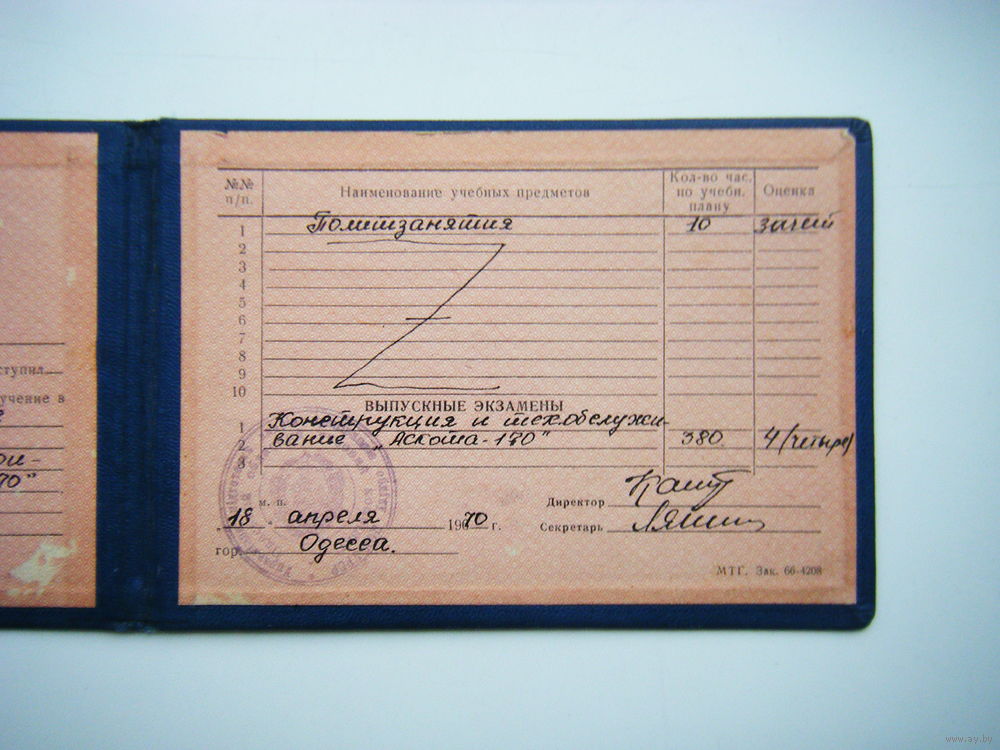 ступил
учение в
ои-
70"
№№ п/п. Наименование учебных предметов Кол-во час. по учебн. плану Оценка
1 Политзанятия 10 зачет
2
3
4
5
6
7
8
9
10
ВЫПУСКНЫЕ ЭКЗАМЕНЫ
1 Конструкция и техобслужи-
2 вание „Аскота-170" 380 4 (четыре)
3
м. п.
Директор
18 апреля 1970 г.
Секретарь
гор. Одесса.
МТГ. Зак. 66-4208
www.ay.by